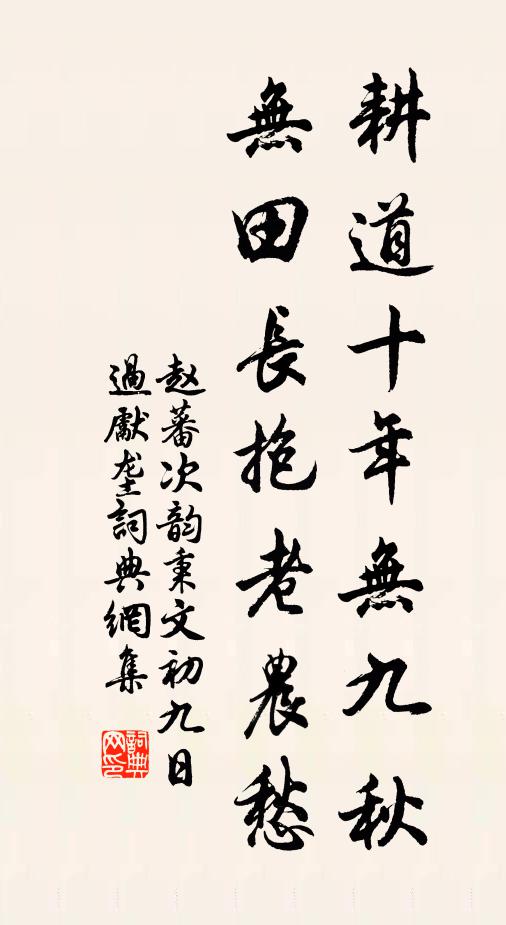 耕道十年無九秋
無田長抱老農愁
赵蕃次韵秉文初九日
過獻垄詞典網集
詞典网印